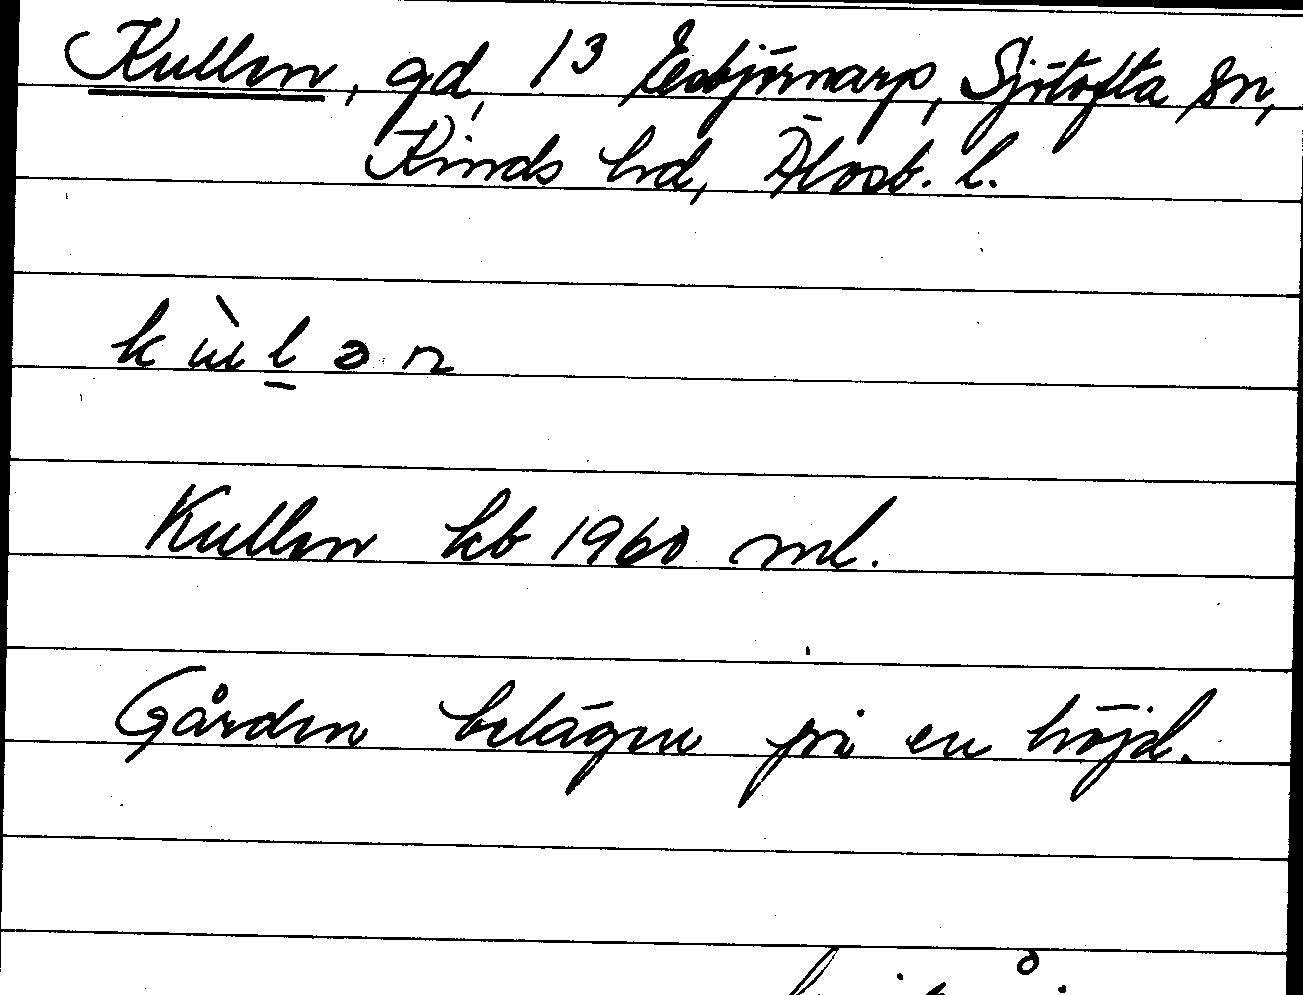 Kullen, gd, 13 Esbjörnarp, Sjötofta sn,
Kinds hd, Älvsb. l.
k ù l̠ ə n
Kullen kb 1960 ml.
Gården belägen på en höjd.